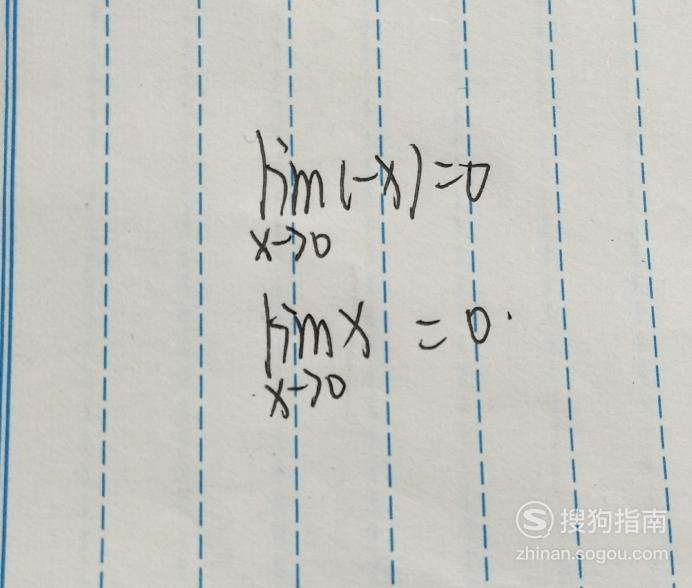 lim(-x)=0
x→0
lim x = 0.
x→0
S 搜狗指南
zhinan.sogou.com